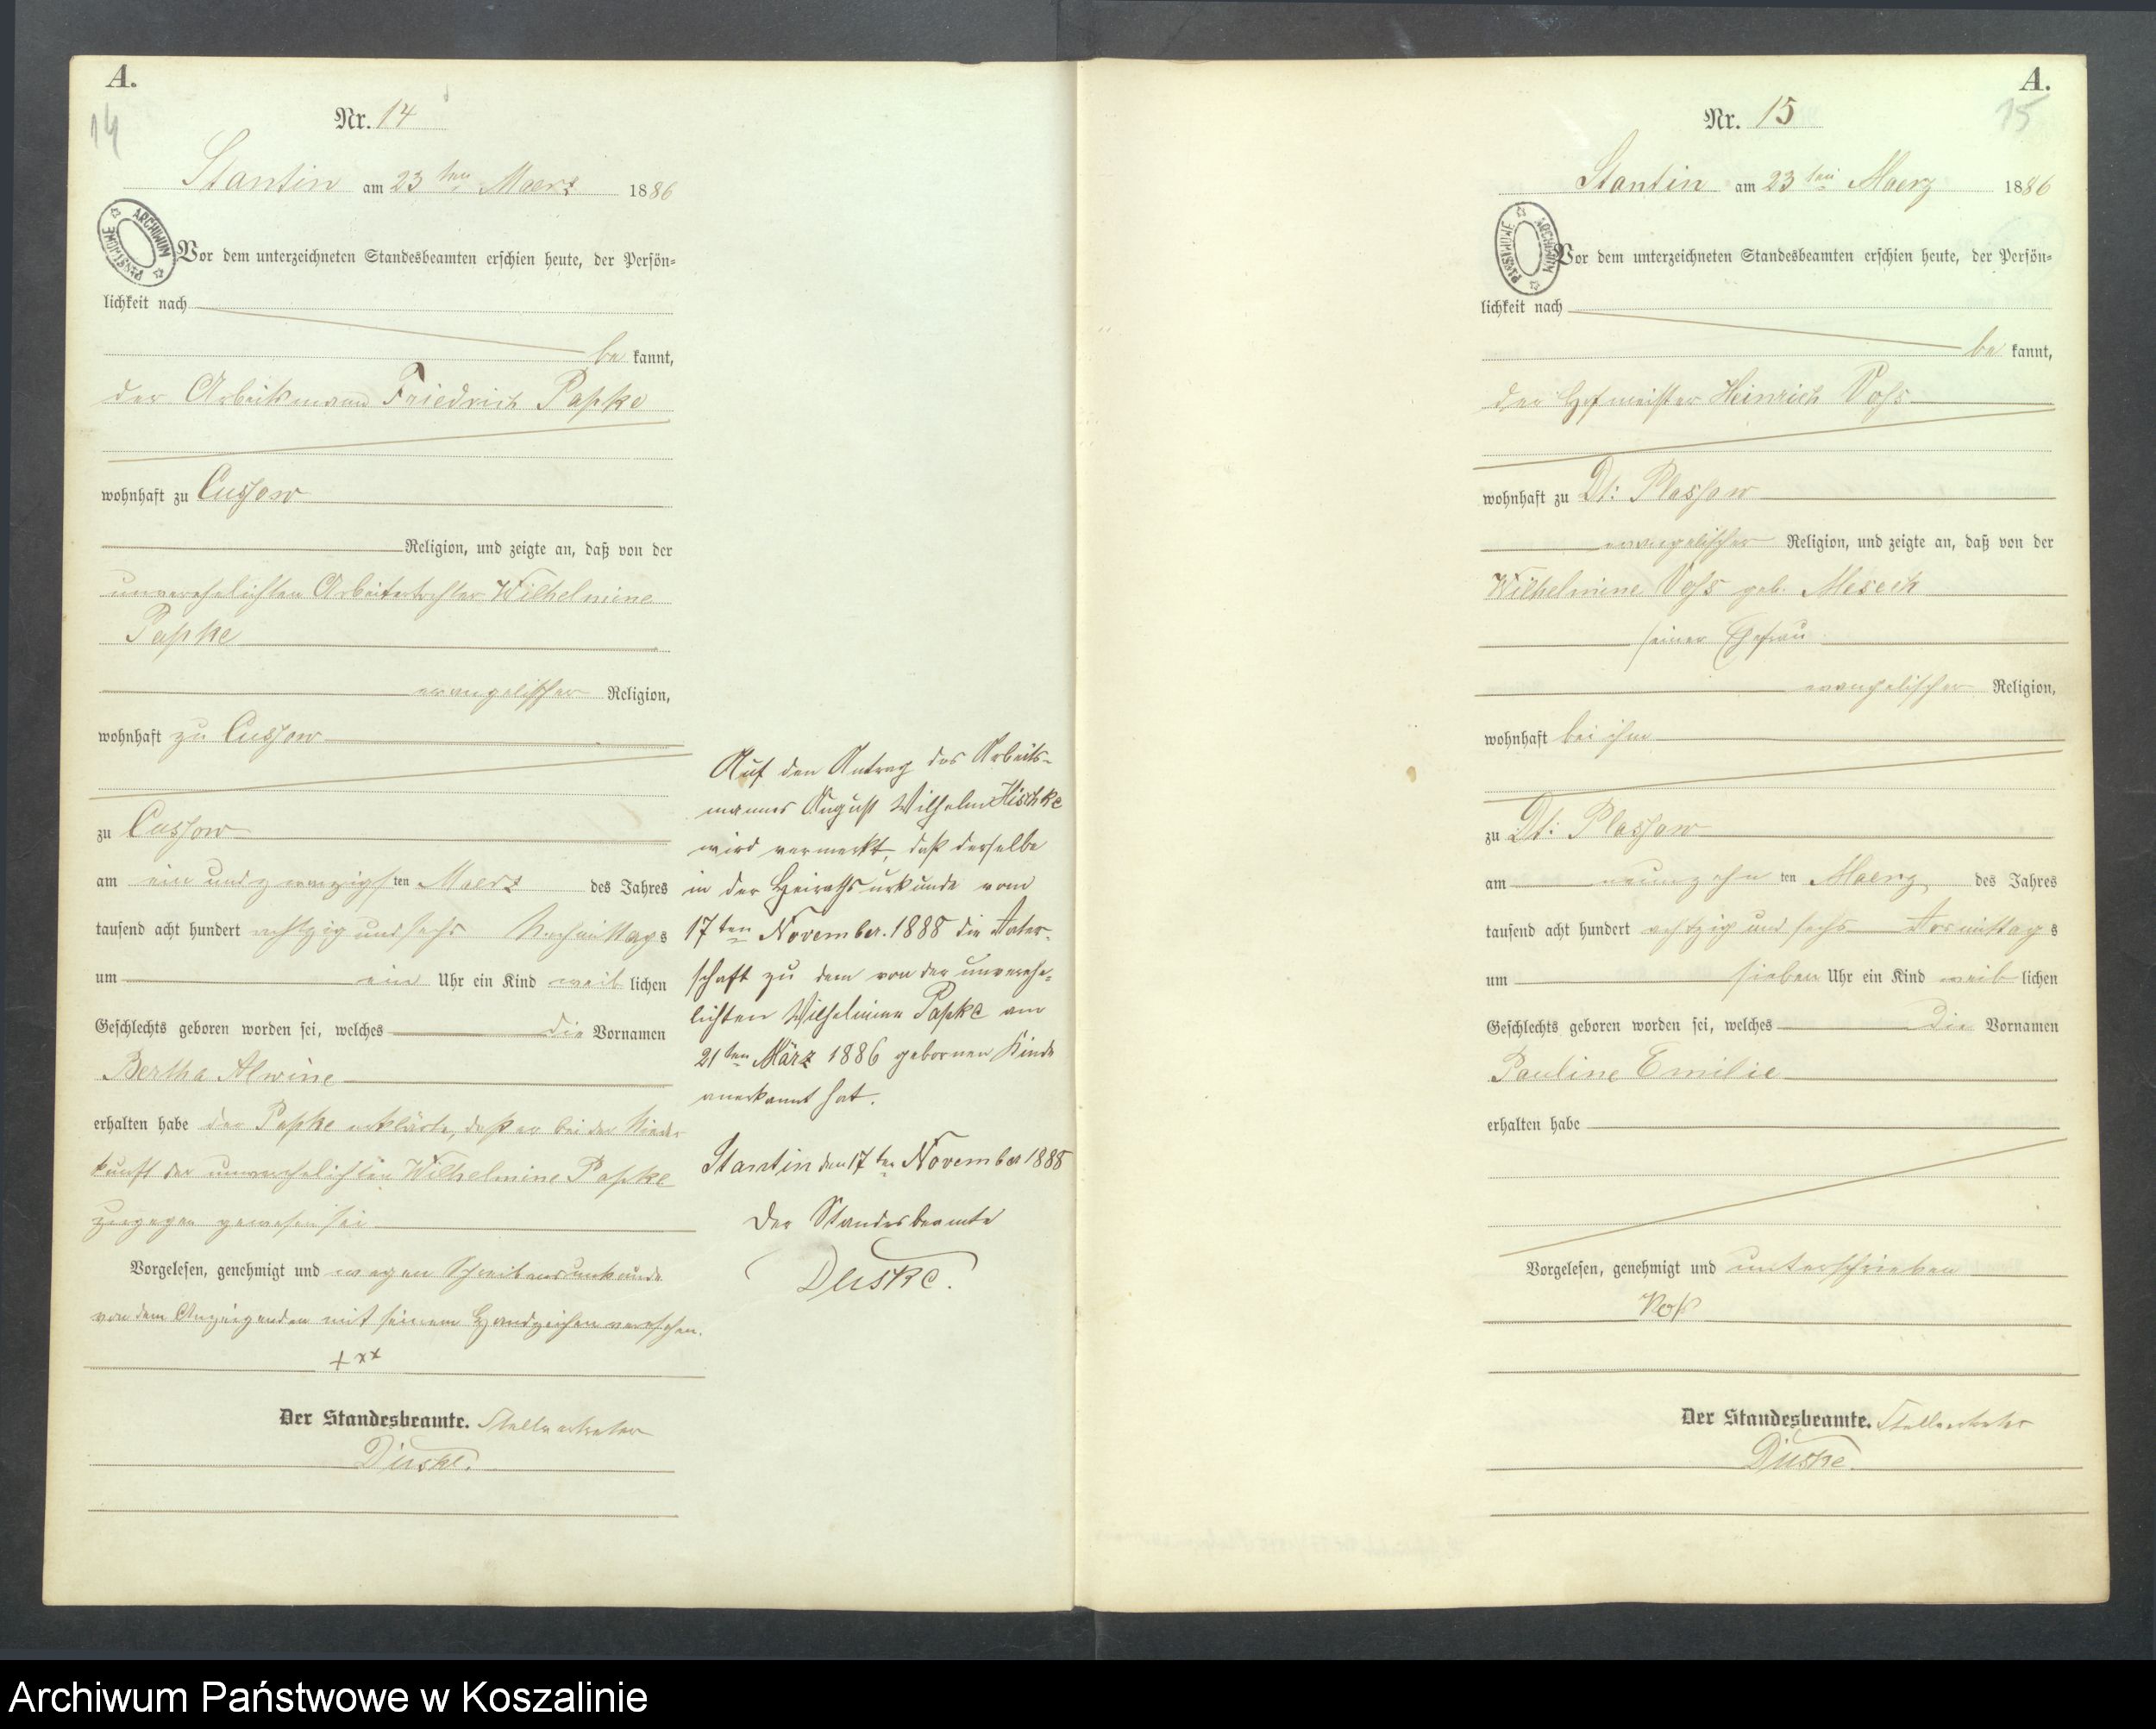 A.
14
Nr. 14
Stantin am 23 ten Maerz 1886
ARCHIWUM PAŃSTWOWE
Vor dem unterzeichneten Standesbeamten erschien heute, der Persön-
lichkeit nach
be kannt,
der Arbeitsmann Friedrich Papke
wohnhaft zu Cussow
Religion, und zeigte an, daß von der
unverehelichten Arbeitertochter Wilhelmine
Papke
evangelischer Religion,
wohnhaft zu Cussow
zu Cussow
am ein und zwanzigsten Maerz des Jahres
tausend acht hundert achtzig und sechs Nachmittags
um ein Uhr ein Kind weib lichen
Geschlechts geboren worden sei, welches die Vornamen
Bertha Alwine
erhalten habe der Papke erklärte, daß er bei der Nieder
kunft der unverehelichten Wilhelmine Papke
zugegen gewesen sei
Vorgelesen, genehmigt und wegen Schreibensunkunde
von dem Anzeigenden mit seinem Handzeichen versehen.
+ x x
Der Standesbeamte. Stellvertreter
Düske.
Auf den Antrag des Arbeits-
mannes August Wilhelm Hischke
wird vermerkt, daß derselbe
in der Heirathsurkunde vom
17 ten November. 1888 die Vater-
schaft zu dem von der unverehe-
lichten Wilhelmine Papke am
21 ten März 1886 gebornen Kinde
anerkannt hat.
Stantin den 17 ten November 1888
Der Standesbeamte
Düske.
A.
15
Nr. 15
Stantin am 23 ten Maerz 1886
ARCHIWUM PAŃSTWOWE
Vor dem unterzeichneten Standesbeamten erschien heute, der Persön-
lichkeit nach
be kannt,
der Hofmeister Heinrich Voss
wohnhaft zu Dt: Plassow
evangelischer Religion, und zeigte an, daß von der
Wilhelmine Voss geb. Mesech
seiner Ehefrau
evangelischer Religion,
wohnhaft bei ihm
zu Dt: Plassow
am neunzehn ten Maerz des Jahres
tausend acht hundert achtzig und sechs Vormittags
um sieben Uhr ein Kind weib lichen
Geschlechts geboren worden sei, welches die Vornamen
Pauline Emilie
erhalten habe
Vorgelesen, genehmigt und unterschrieben
Voß
Der Standesbeamte. Stellvertreter
Düske.
Archiwum Państwowe w Koszalinie